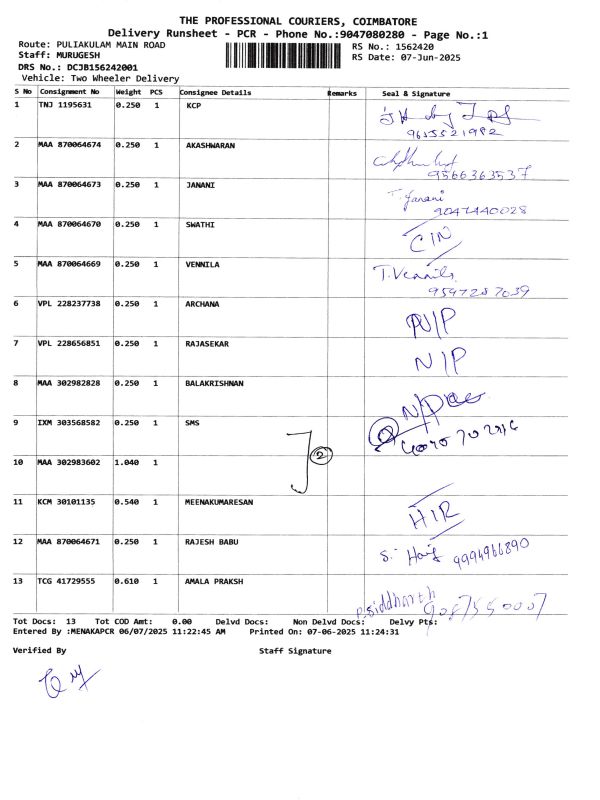 THE PROFESSIONAL COURIERS, COIMBATORE
Delivery Runsheet - PCR - Phone No.:9047080280 - Page No.:1
Route: PULIAKULAM MAIN ROAD RS No.: 1562420
Staff: MURUGESH RS Date: 07-Jun-2025
DRS No.: DCJB156242001
Vehicle: Two Wheeler Delivery
S No Consignment No Weight PCS Consignee Details Remarks Seal & Signature
1 TNJ 1195631 0.250 1 KCP
9655521982
2 MAA 870064674 0.250 1 AKASHWARAN
9566363537
3 MAA 870064673 0.250 1 JANANI T. Janani
9047440028
4 MAA 870064670 0.250 1 SWATHI C/N
5 MAA 870064669 0.250 1 VENNILA T. Vennila
9597287039
6 VPL 228237738 0.250 1 ARCHANA N/P
7 VPL 228656851 0.250 1 RAJASEKAR N/P
8 MAA 302982828 0.250 1 BALAKRISHNAN
9 IXM 303568582 0.250 1 SMS
2
10 MAA 302983602 1.040 1
11 KCM 30101135 0.540 1 MEENAKUMARESAN H/R
12 MAA 870064671 0.250 1 RAJESH BABU S. 9994966890
13 TCG 41729555 0.610 1 AMALA PRAKSH P. Siddharth
Tot Docs: 13 Tot COD Amt: 0.00 Delvd Docs: Non Delvd Docs: Delvy Pts:
Entered By :MENAKAPCR 06/07/2025 11:22:45 AM Printed On: 07-06-2025 11:24:31
Verified By Staff Signature